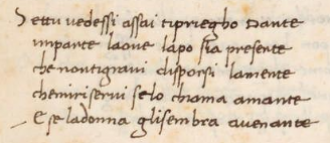 Settu vedessi assai tipriegho dante
inparte laove lapo sia presente
che nontigravi disporsi lamente
chemiriservi selo chiama amante
E se ladonna glisembra avenante